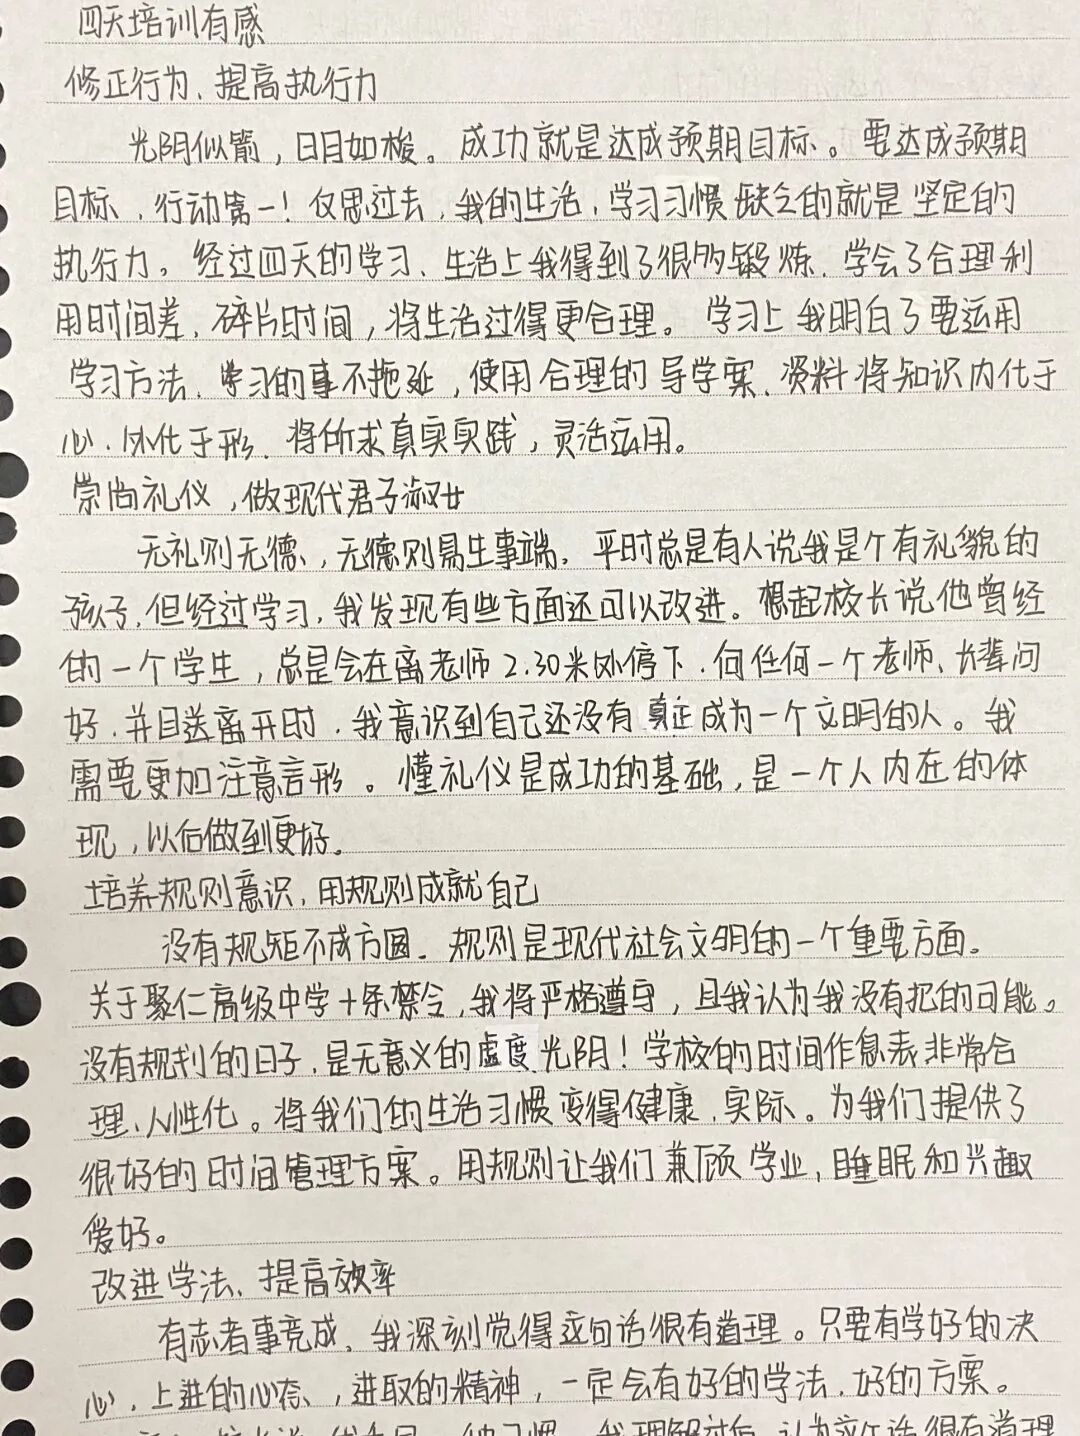 四天培训有感
修正行为、提高执行力
光阴似箭，日月如梭。成功就是达成预期目标。要达成预期
目标，行动第一！仅思过去，我的生活，学习习惯缺乏的就是坚定的
执行力。经过四天的学习、生活上我得到了很多锻炼、学会了合理利
用时间差，碎片时间，将生活过得更合理。学习上我明白了要运用
学习方法、学习的事不拖延，使用合理的导学案、资料将知识内化于
心、外化于形、将所求真实实践，灵活运用。
崇尚礼仪，做现代君子淑女
无礼则无德、无德则易生事端，平时总是有人说我是个有礼貌的
孩子，但经过学习，我发现有些方面还可以改进。想起校长说他曾经
的一个学生，总是会在离老师2.30米外停下，向任何一个老师、长辈问
好，并目送离开时，我意识到自己还没有真正成为一个文明的人。我
需要更加注意言形。懂礼仪是成功的基础，是一个人内在的体
现，以后做到更好。
培养规则意识，用规则成就自己
没有规矩不成方圆。规则是现代社会文明的一个重要方面。
关于聚仁高级中学十条禁令，我将严格遵守，且我认为我没有犯的可能。
没有规划的日子，是无意义的虚度光阴！学校的时间作息表非常合
理、人性化。将我们的生活习惯变得健康、实际。为我们提供了
很好的时间管理方案。用规则让我们兼顾学业，睡眠和兴趣
爱好。
改进学法、提高效率
有志者事竟成，我深刻觉得这句话很有道理。只要有学好的决
心，上进的心态、，进取的精神，一定会有好的学法、好的方案。
我理解过后，认为这个话很有道理